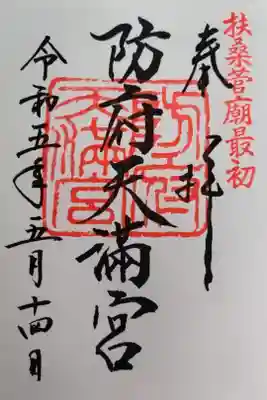 扶桑菅廟最初
奉拝
防府天満宮
令和五年五月十四日